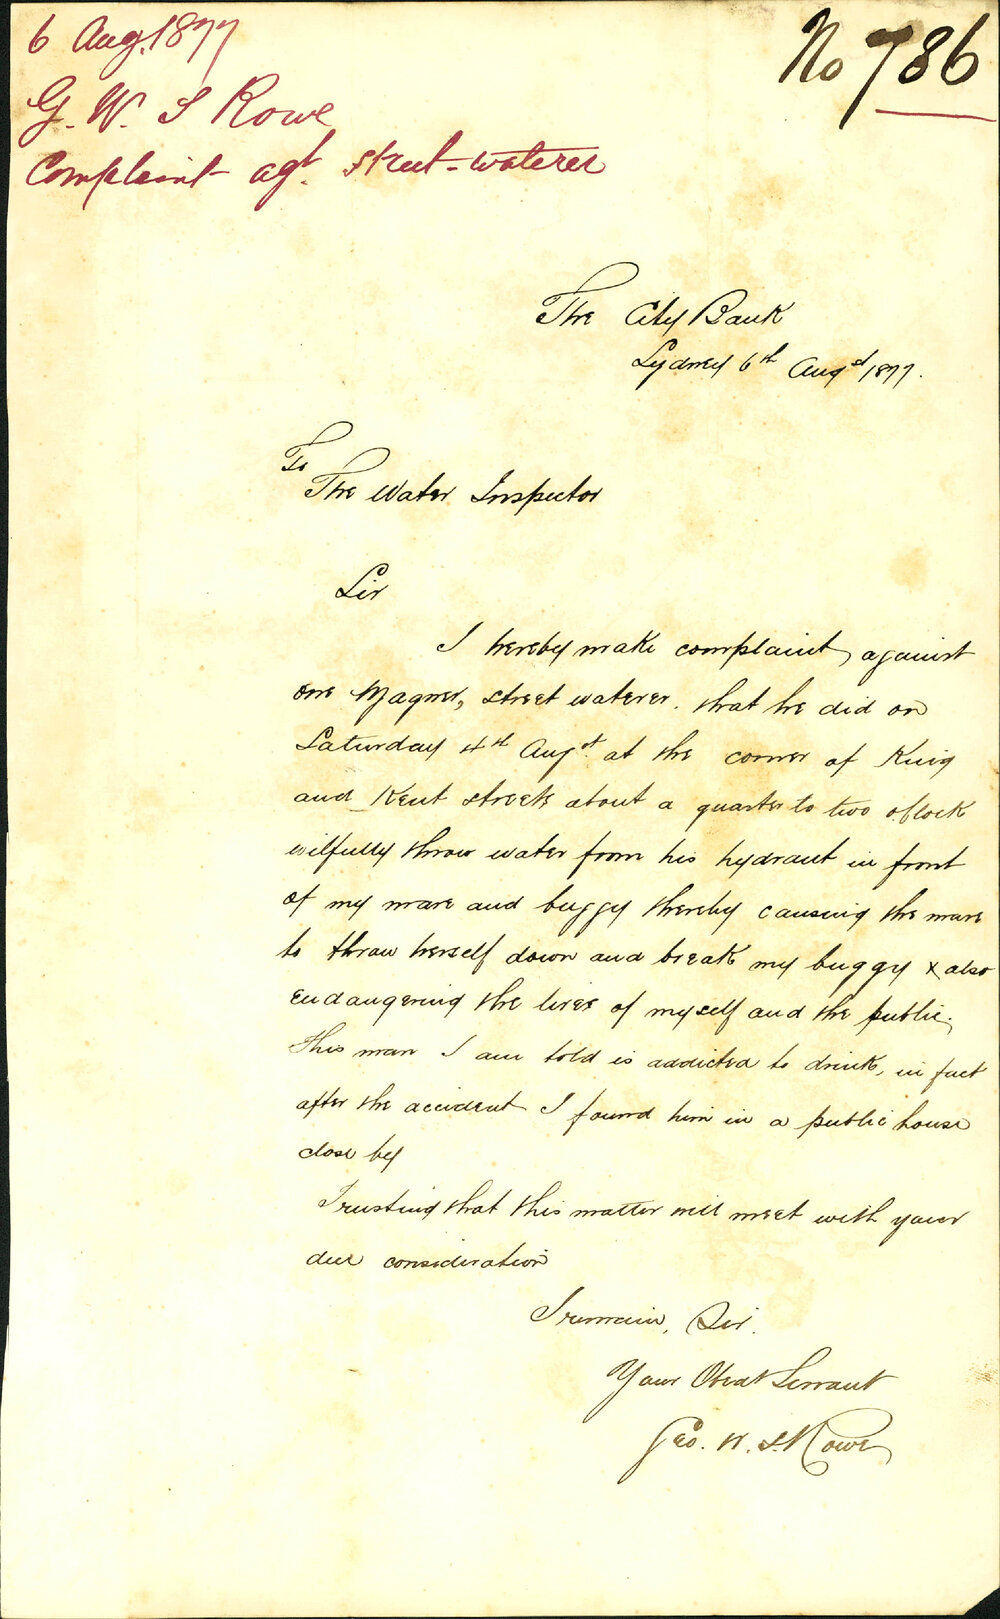 6 Aug. 1877
No 786
G. W. S Rowe
Complaint agt. street-waterer
The City Bank
Sydney 6th Augst 1877.
To
The Water Inspector
Sir
I hereby make complaint, against
one Magner, street waterer. that he did on
Saturday 4th Augst. at the corner of King
and Kent streets about a quarter to two o'clock
wilfully throw water from his hydrant in front
of my mare and buggy thereby causing the mare
to throw herself down and break my buggy & also
endangering the lives of myself and the public.
This man I am told is addicted to drink, in fact
after the accident I found him in a public house
close by
Trusting that this matter will meet with your
due consideration
I remain, Sir.
Your Obedt Servant
Geo. W. S. Rowe